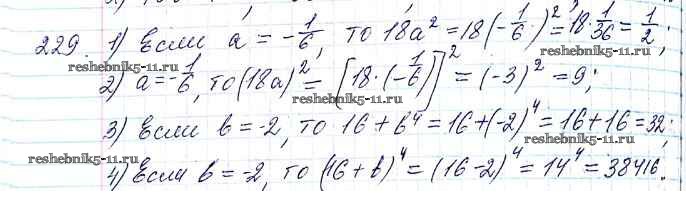 229. 1) Если a = -1/6, то 18a² = 18(-1/6)² = 18·1/36 = 1/2;
reshebnik5-11.ru
2) a = -1/6, то (18a)² = [18·(-1/6)]² = (-3)² = 9;
reshebnik5-11.ru
reshebnik5-11.ru
3) Если b = -2, то 16 + b⁴ = 16 + (-2)⁴ = 16 + 16 = 32;
reshebnik5-11.ru
reshebnik5-11.ru
4) Если b = -2, то (16 + b)⁴ = (16 - 2)⁴ = 14⁴ = 38416.